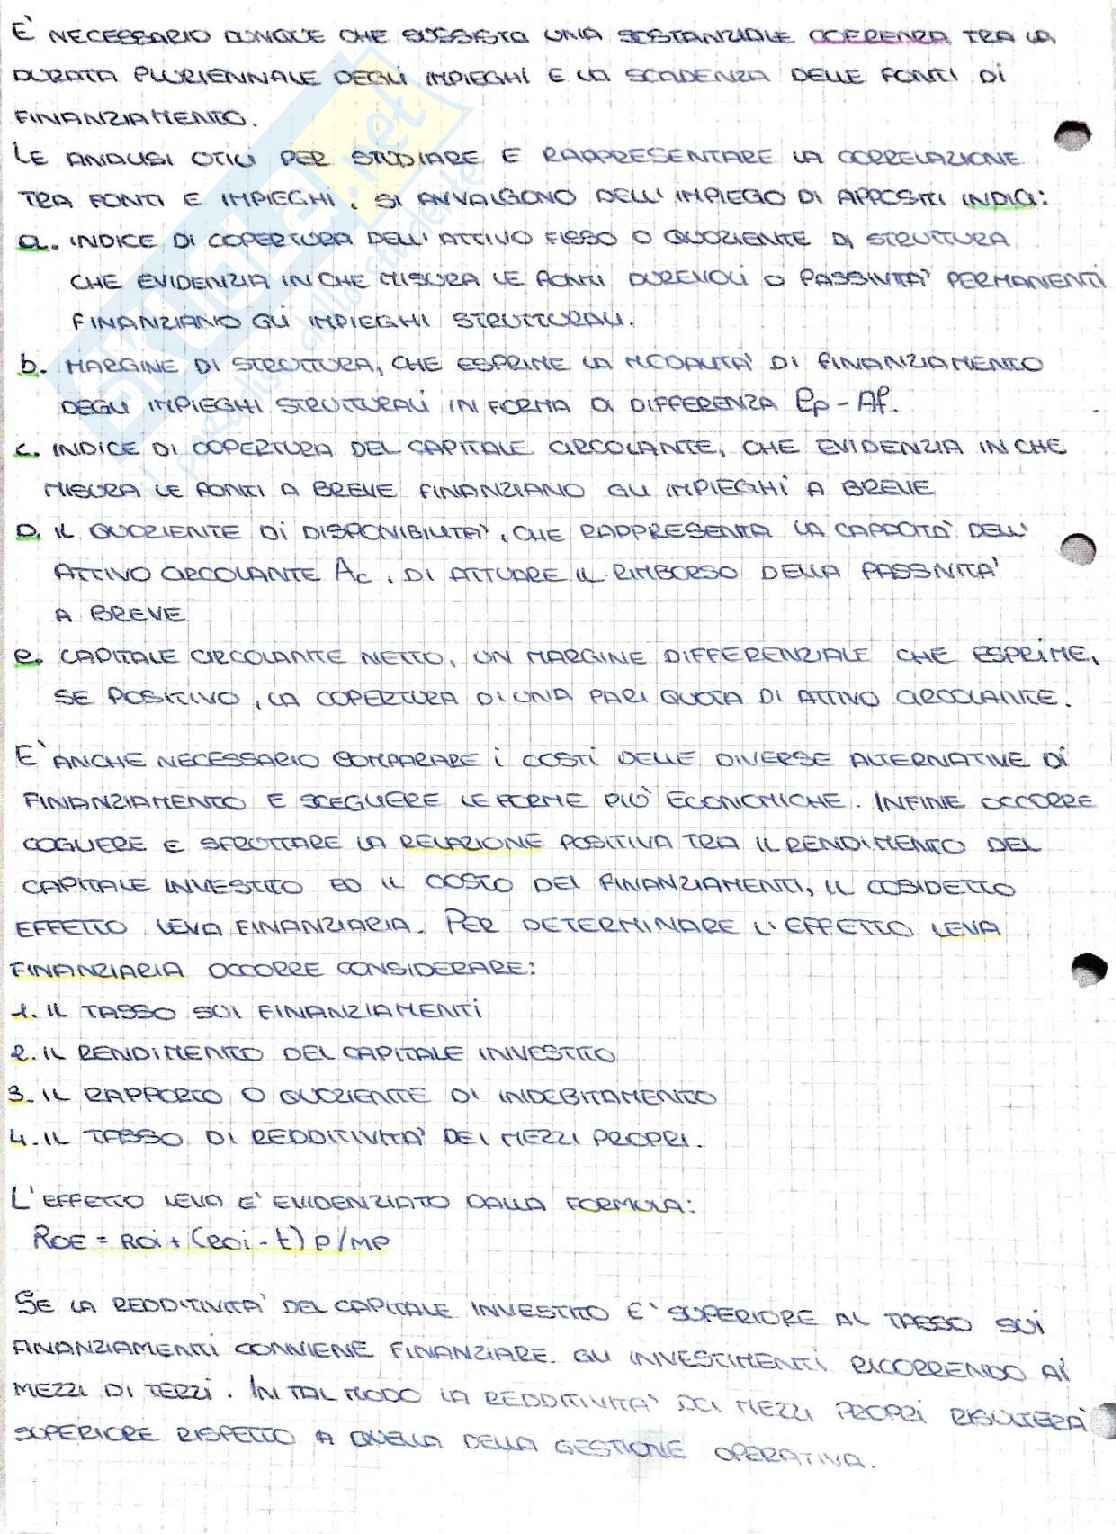 E' NECESSARIO DUNQUE CHE SUSSISTA UNA SOSTANZIALE COERENZA TRA LA
DURATA PLURIENNALE DEGLI IMPIEGHI E LA SCADENZA DELLE FONTI DI
FINANZIAMENTO.
LE ANALISI UTILI PER STUDIARE E RAPPRESENTARE LA CORRELAZIONE
TRA FONTI E IMPIEGHI, SI AVVALGONO DELL'IMPIEGO DI APPOSITI INDICI:
a. INDICE DI COPERTURA DELL'ATTIVO FISSO O QUOZIENTE DI STRUTTURA
CHE EVIDENZIA IN CHE MISURA LE FONTI DUREVOLI O PASSIVITA' PERMANENTI
FINANZIANO GLI IMPIEGHI STRUTTURALI.
b. MARGINE DI STRUTTURA, CHE ESPRIME LA MODALITA' DI FINANZIAMENTO
DEGLI IMPIEGHI STRUTTURALI IN FORMA DI DIFFERENZA Pp - Af.
c. INDICE DI COPERTURA DEL CAPITALE CIRCOLANTE, CHE EVIDENZIA IN CHE
MISURA LE FONTI A BREVE FINANZIANO GLI IMPIEGHI A BREVE
D. IL QUOZIENTE DI DISPONIBILITA', CHE RAPPRESENTA LA CAPACITA' DELL'
ATTIVO CIRCOLANTE Ac, DI ATTUARE IL RIMBORSO DELLA PASSIVITA'
A BREVE
e. CAPITALE CIRCOLANTE NETTO, UN MARGINE DIFFERENZIALE CHE ESPRIME,
SE POSITIVO, LA COPERTURA DI UNA PARI QUOTA DI ATTIVO CIRCOLANTE.
E' ANCHE NECESSARIO COMPARARE I COSTI DELLE DIVERSE ALTERNATIVE DI
FINANZIAMENTO E SCEGLIERE LE FORME PIU' ECONOMICHE. INFINE OCCORRE
COGLIERE E SFRUTTARE LA RELAZIONE POSITIVA TRA IL RENDIMENTO DEL
CAPITALE INVESTITO ED IL COSTO DEI FINANZIAMENTI, IL COSIDETTO
EFFETTO LEVA FINANZIARIA. PER DETERMINARE L'EFFETTO LEVA
FINANZIARIA OCCORRE CONSIDERARE:
1. IL TASSO SUI FINANZIAMENTI
2. IL RENDIMENTO DEL CAPITALE INVESTITO
3. IL RAPPORTO O QUOZIENTE DI INDEBITAMENTO
4. IL TASSO DI REDDITIVITA' DEI MEZZI PROPRI.
L'EFFETTO LEVA E' EVIDENZIATO DALLA FORMULA:
ROE = ROi + (ROi - t) P/MP
SE LA REDDITIVITA' DEL CAPITALE INVESTITO E' SUPERIORE AL TASSO SUI
FINANZIAMENTI CONVIENE FINANZIARE GLI INVESTIMENTI RICORRENDO AI
MEZZI DI TERZI. IN TAL MODO LA REDDITIVITA' DEI MEZZI PROPRI RISULTERA'
SUPERIORE RISPETTO A QUELLA DELLA GESTIONE OPERATIVA.